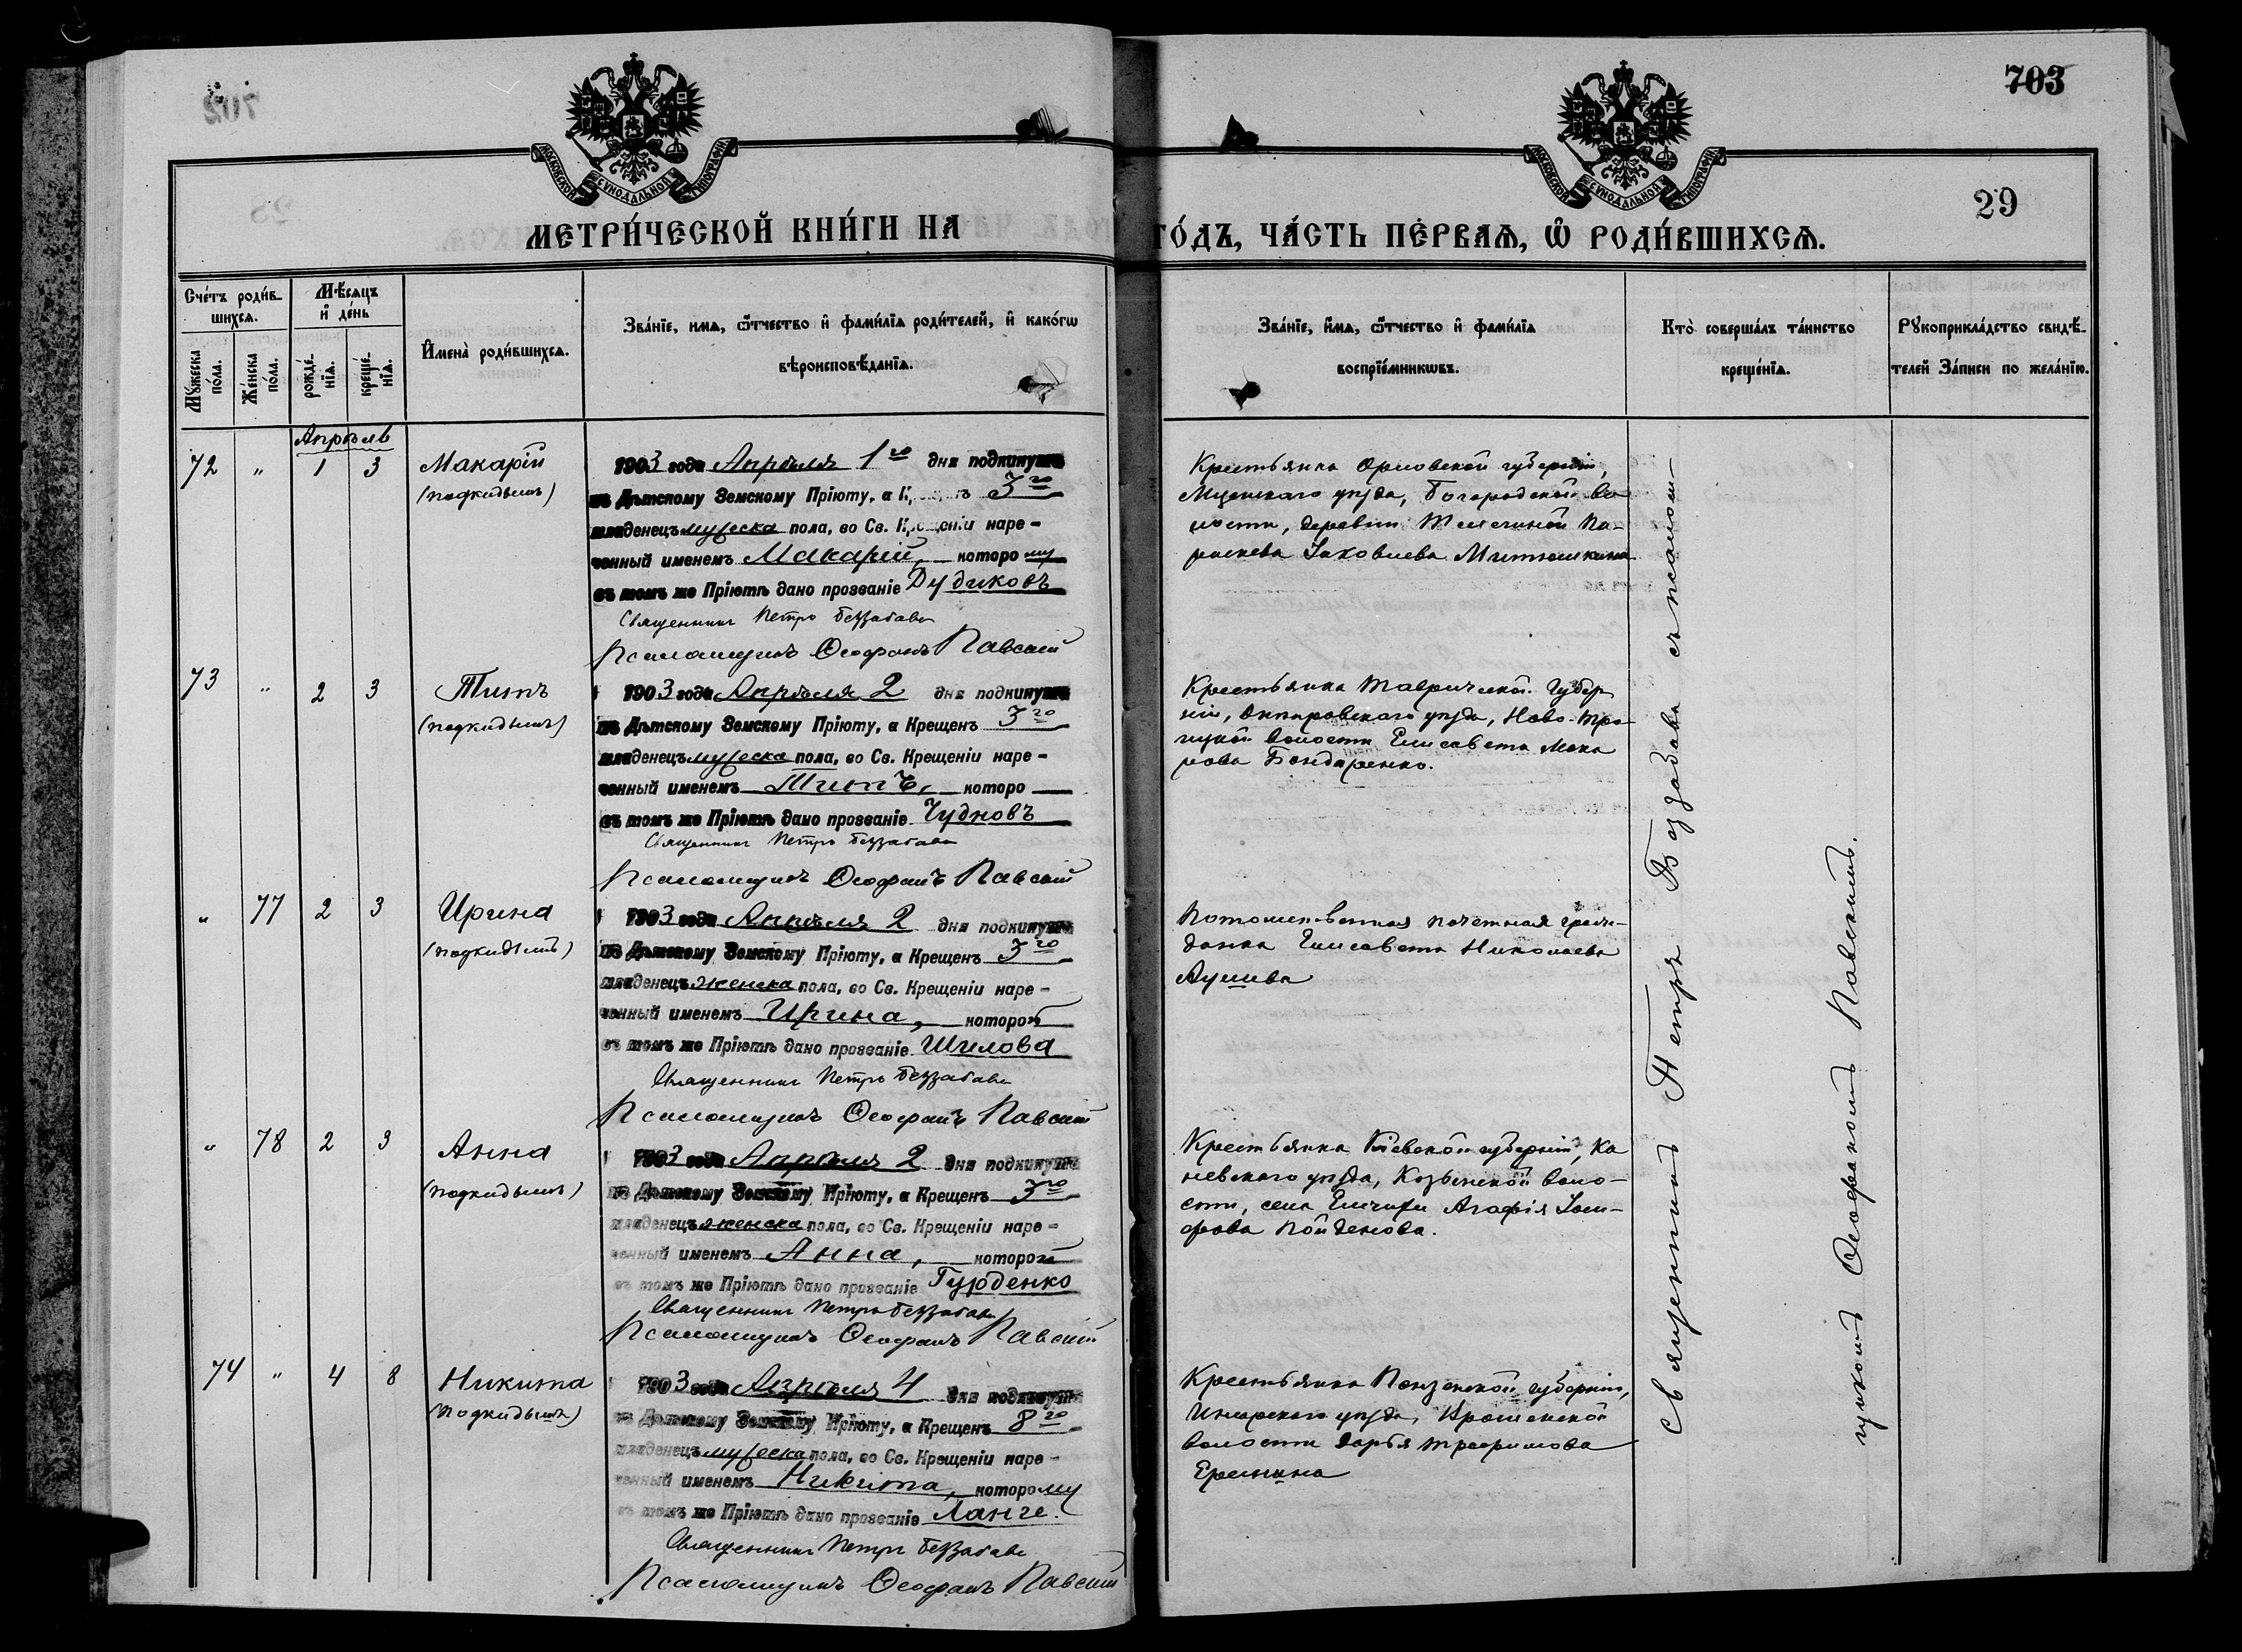 703
МОСКОВСКОЙ СУНОДАЛЬНОЙ ТИПОГРАФІИ
МОСКОВСКОЙ СУНОДАЛЬНОЙ ТИПОГРАФІИ
29
МЕТРИ́ЧЕСКОЙ КНИ́ГИ НА
ГО́ДЪ, ЧА́СТЬ ПЕ́РВАѦ, Ѡ҆ РОДИ́ВШИХСѦ.
Сче́тъ роди́в-
шихсѧ.
Мѣ́сѧцъ
и҆ де́нь
Мꙋ́жеска по́ла.
Же́нска по́ла.
рожде́-
нїѧ.
креще́-
нїѧ.
И҆мена̀ роди́вшихсѧ.
Зва́нїе, имѧ, ѻ҆́тчество и҆ фами́лїѧ роди́телей, и҆ како́гѡ
вѣроисповѣ́данїѧ.
Зва́нїе, и҆́мѧ, ѻ҆́тчество и҆ фами́лїѧ
воспрїе́мникѡвъ.
Кто̀ соверша́лъ та́инство
креще́нїѧ.
Рꙋкоприкла́дство свидѣ́-
телей За́писи по жела́нїю.
Апрѣль
72 „ 1 3 Макарій
(подкидышъ)
1903 года Апрѣля 1го дня подкинутъ
въ Дѣтскому Земскому Пріюту, а Крещенъ 3го
младенецъ мужеска пола, во Св. Крещеніи наре-
ченный именемъ Макарій, которому
въ томъ же Пріютѣ дано прозваніе Дудиковъ
Священникъ Петръ Беззабава
Псаломщикъ Ѳеофанъ Павскій
Крестьянка Орловской губерніи,
Мценскаго уѣзда, Богородской во-
лости, деревни Па-
раскева Іаковлева Митюшкина
73 „ 2 3 Титъ
(подкидышъ)
1903 года Апрѣля 2 дня подкинутъ
въ Дѣтскому Земскому Пріюту, а Крещенъ 3го
младенецъ мужеска пола, во Св. Крещеніи наре-
ченный именемъ Титъ, которо
въ томъ же Пріютѣ дано прозваніе Чудновъ
Священникъ Петръ Беззабава
Псаломщикъ Ѳеофанъ Павскій
Крестьянка Таврической Губер
ніи, Днѣпровскаго уѣзда, Ново-Тро-
ицкой волости Елисавета Мака
рова Бондаренко.
„ 77 2 3 Ирина
(подкидышъ)
1903 года Апрѣля 2 дня подкинутъ
въ Дѣтскому Земскому Пріюту, а Крещенъ 3го
младенецъ женска пола, во Св. Крещеніи наре-
ченный именемъ Ирина, которой
въ томъ же Пріютѣ дано прозваніе Шилова
Священникъ Петръ Беззабава
Псаломщикъ Ѳеофанъ Павскій
Потомственная почетная граж-
данка Елисавета Николаева
„ 78 2 3 Анна
(подкидышъ)
1903 года Апрѣля 2 дня подкинутъ
въ Дѣтскому Земскому Пріюту, а Крещенъ 3го
младенецъ женска пола, во Св. Крещеніи наре-
ченный именемъ Анна, которой
въ томъ же Пріютѣ дано прозваніе Гурденко
Священникъ Петръ Беззабава
Псаломщикъ Ѳеофанъ Павскій
Крестьянка Кіевской губерніи, Ка
невскаго уѣзда, Козынской воло-
сти, села Агафія
Пойденова.
74 „ 4 8 Никита
(подкидышъ)
1903 года Апрѣля 4 дня подкинутъ
въ Дѣтскому Земскому Пріюту, а Крещенъ 8го
младенецъ мужеска пола, во Св. Крещеніи наре-
ченный именемъ Никита, которому
въ томъ же Пріютѣ дано прозваніе Ланге.
Священникъ Петръ Беззабава
Псаломщикъ Ѳеофанъ Павскій
Крестьянка Пензенской губерніи,
Инсарскаго уѣзда,
волости Дарья Трофимова
Еремина
Священникъ Петръ Беззабава съ псалом-
щикомъ Ѳеофаномъ Павскимъ.